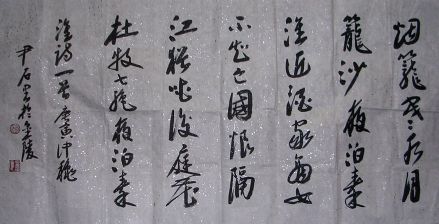 烟籠寒水月
籠沙夜泊秦
淮近酒家商女
不知亡國恨隔
江猶唱後庭花
杜牧七絕夜泊秦
淮詩一首 庚寅仲秋
尹石書於金陵